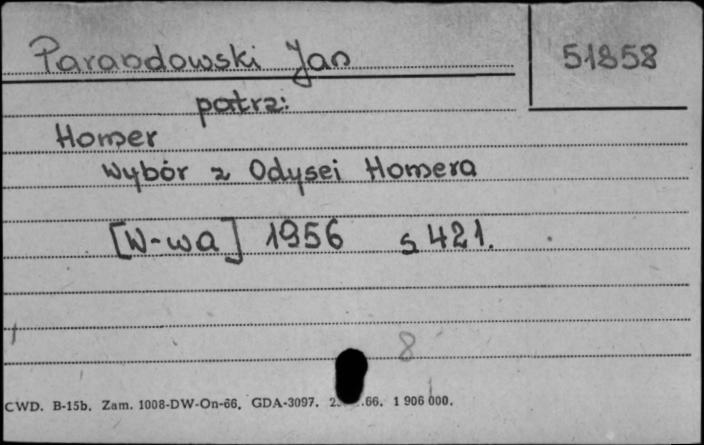 Parandowski Jan
51858
patrz:
Homer
Wybór z Odysei Homera
[W-wa] 1956 s 421.
8
CWD. B-15b. Zam. 1008-DW-On-66. GDA-3097. .66. 1 906 000.